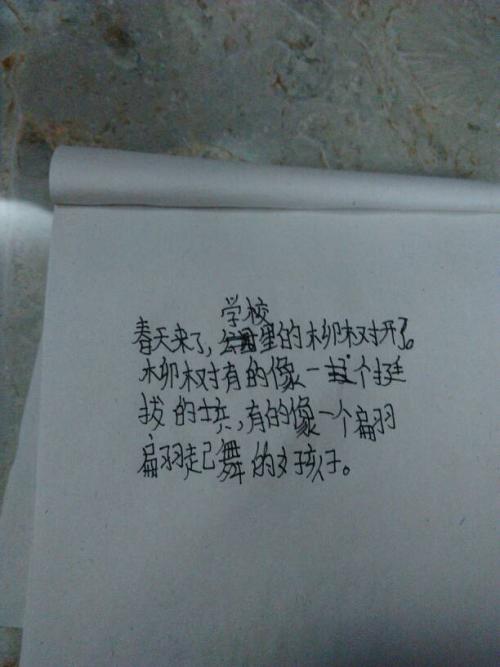 学校
春天来了，公园里的柳树开了。
柳树有的像一个挺
拔的士兵，有的像一个翩
翩起舞的女孩子。